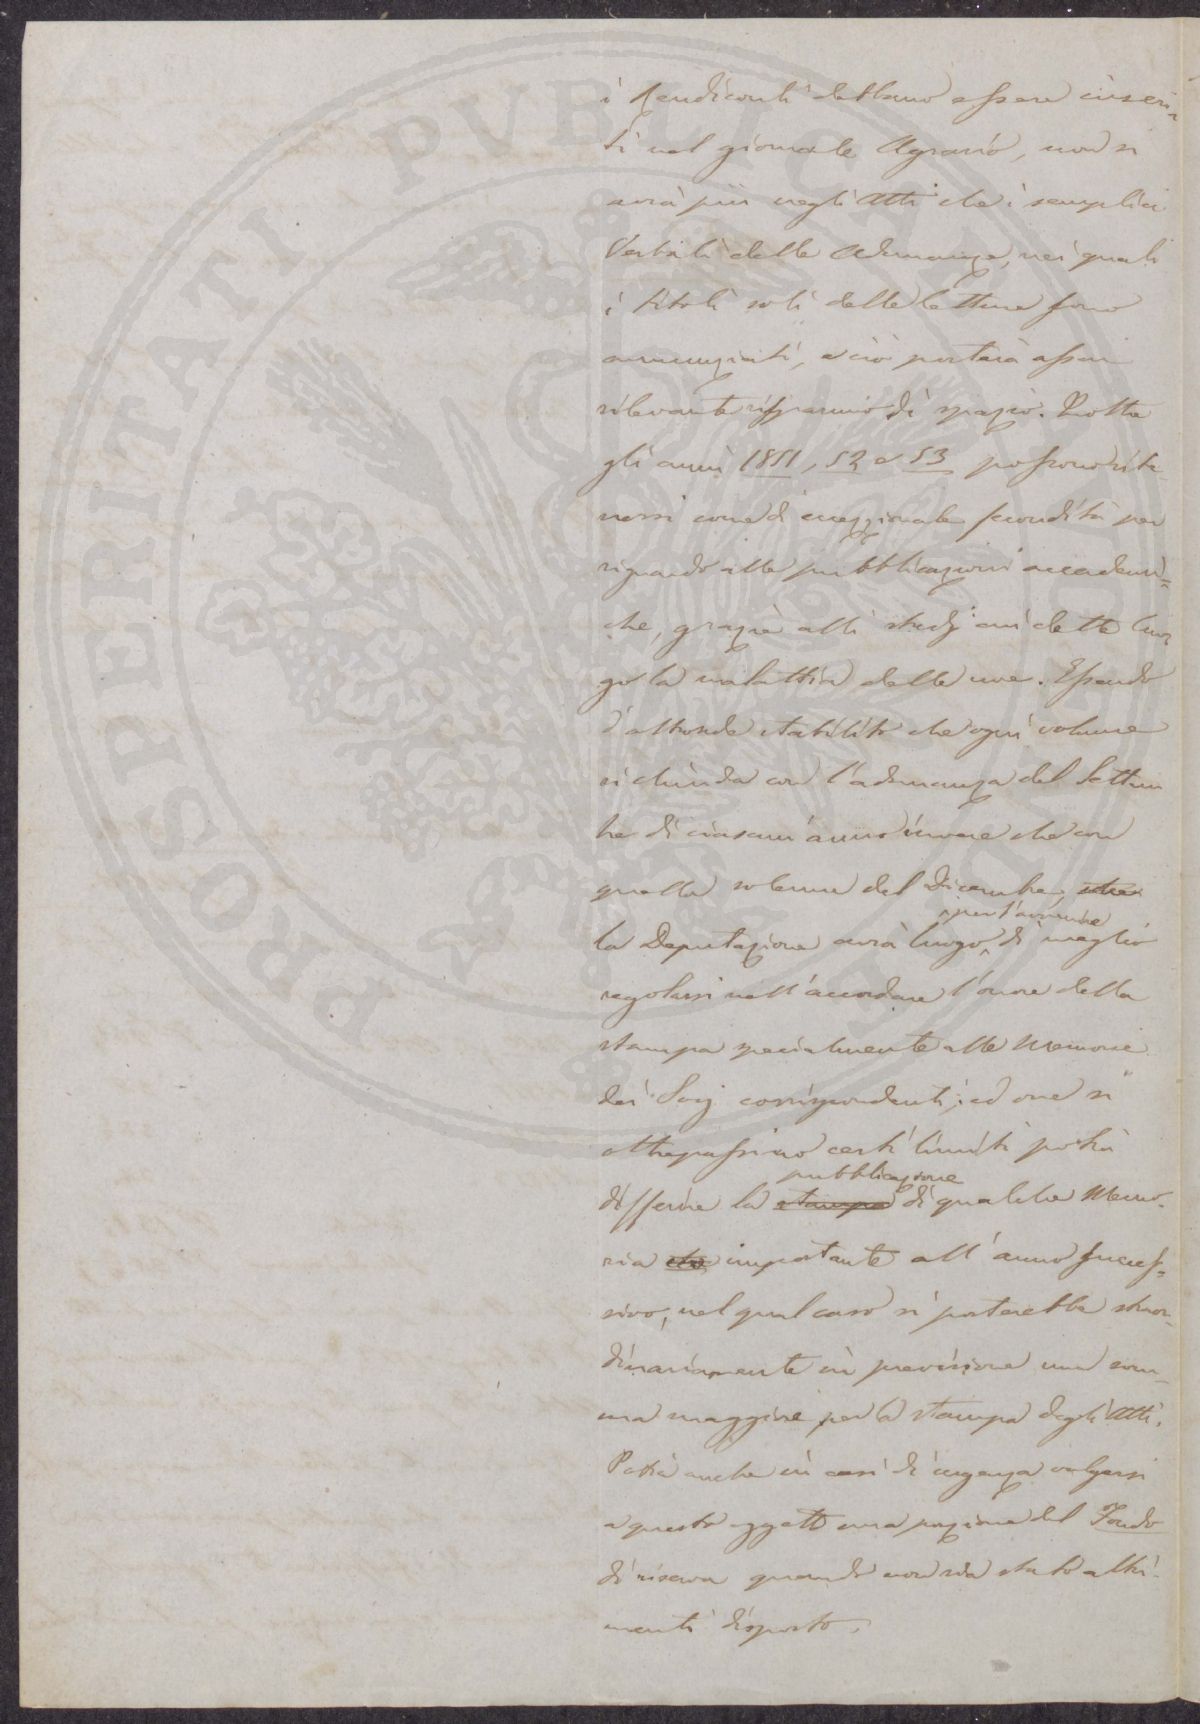 i Rendiconti debbano essere inseri-
ti nel giornale Agrario, non si
avrà più negli Atti che i semplici
Verbali delle Adunanze, nei quali
i titoli soli delle letture sono
annunziati, e ciò porterà assai
rilevante risparmio di spazio. Inoltre
gli anni 1851, 52 e 53 possono rite-
nersi come di eccezzionale fecondità per
riguardo alle pubblicazioni accademi=
che, grazie alli studj cui dette luo-
go la malattia delle uve. Essendo
d'altronde stabilito che ogni volume
si chiuda con l'adunanza del Settem
bre di ciascun'anno invece che con
quella solenne del Dicembre,
per l'avvenire
la Deputazione avrà luogo di meglio
regolarsi nell'accordare l'onore della
stampa specialmente alle Memorie
dei Socj corrispondenti; ed ove si
oltrepassino certi limiti potrà
pubblicazione
differire la stampa di qualche Memo-
ria che importante all'anno succes-
sivo, nel qual caso si porterebbe straor-
dinariamente in previsione una som-
ma maggiore per la stampa degli Atti.
Potrà anche in casi di urgenza volgersi
a questo oggetto una porzione del Fondo
di riserva quando non sia stato altri-
menti disposto.
PROSPERITATI PVBLICAE